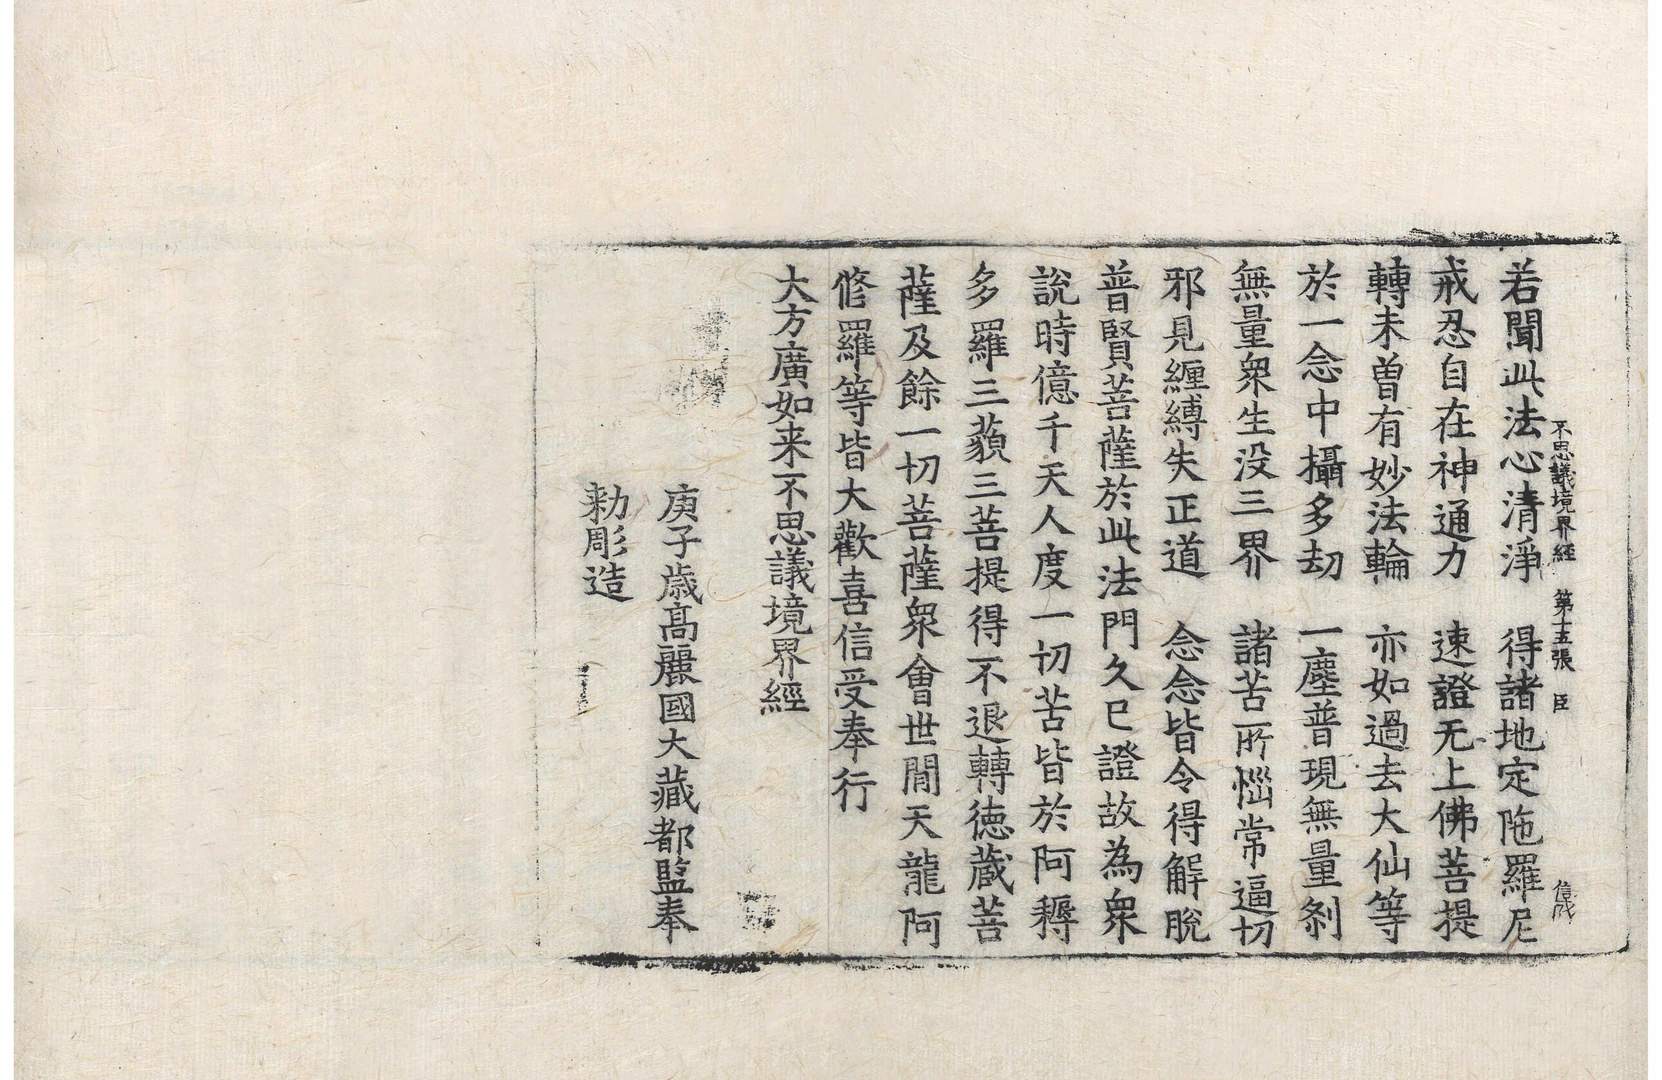 不思議境界經 第十五張 臣
若聞此法心清淨 得諸地定陁羅尼
戒忍自在神通力 速證无上佛菩提
轉未曽有妙法輪 亦如過去大仙等
於一念中攝多劫 一塵普現無量刹
無量衆生没三界 諸苦所惱常逼切
邪見纒縛失正道 念念皆令得解脫
普賢菩薩於此法門久已證故為衆
說時億千天人度一切苦皆於阿耨
多羅三藐三菩提得不退轉徳蔵菩
薩及餘一切菩薩衆會世閒天龍阿
脩羅等皆大歡喜信受奉行
大方廣如来不思議境界經
庚子歳髙麗國大藏都監奉
勑彫造